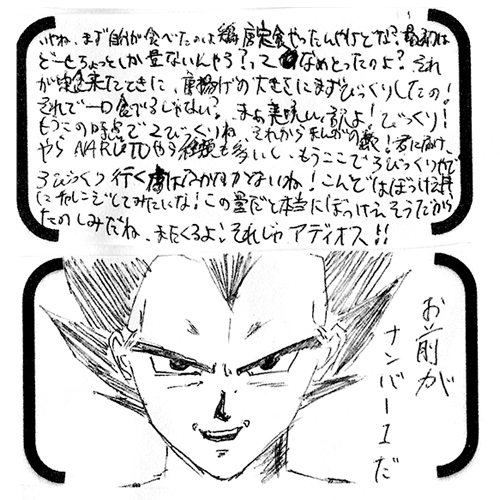 いやね、まず自分が食べたのは鶏唐定食やったんやけどな?最初は
どーせちょっとしか量ないんやろ?って なめとったのよ?それ
が定食来たときに、唐揚げの大きさにまずびっくりしたの!
それで一口食べるじゃない? まぁ美味しい訳よ!びっくり!
もうこの時点で2びっくりね、それからまんがの数!君に届け、
やら NARUTOやら種類も多いし、もうここで3びっくりやで
3びっくり行く店はなかなかないね!こんどはぼっけえ丼
にちゃれんじしてみたいな!この量だと本当にぼっけえそうだから
たのしみだね、またくるよ!それじゃ アディオス!!
お前が
ナンバー1だ